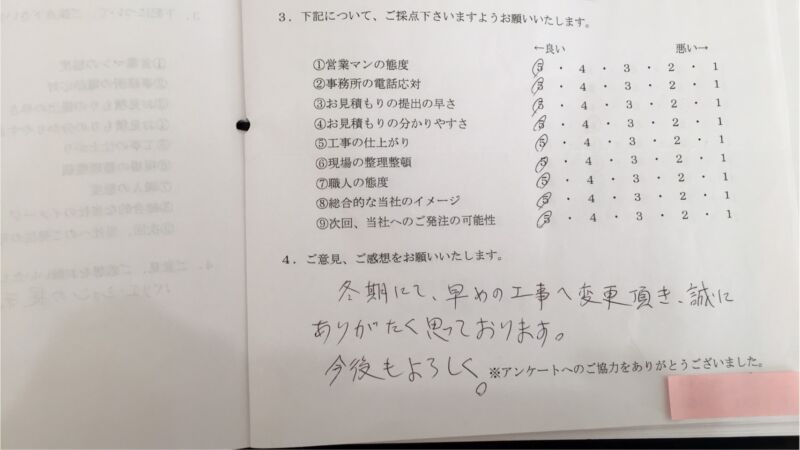 3．下記について、ご採点下さいますようお願いいたします。
←良い 悪い→
①営業マンの態度 5 ・ 4 ・ 3 ・ 2 ・ 1
②事務所の電話応対 5 ・ 4 ・ 3 ・ 2 ・ 1
③お見積もりの提出の早さ 5 ・ 4 ・ 3 ・ 2 ・ 1
④お見積もりの分かりやすさ 5 ・ 4 ・ 3 ・ 2 ・ 1
⑤工事の仕上がり 5 ・ 4 ・ 3 ・ 2 ・ 1
⑥現場の整理整頓 5 ・ 4 ・ 3 ・ 2 ・ 1
⑦職人の態度 5 ・ 4 ・ 3 ・ 2 ・ 1
⑧総合的な当社のイメージ 5 ・ 4 ・ 3 ・ 2 ・ 1
⑨次回、当社へのご発注の可能性 5 ・ 4 ・ 3 ・ 2 ・ 1
4．ご意見、ご感想をお願いいたします。
冬期にて、早めの工事へ変更頂き、誠に
ありがたく思っております。
今後もよろしく。
※アンケートへのご協力をありがとうございました。